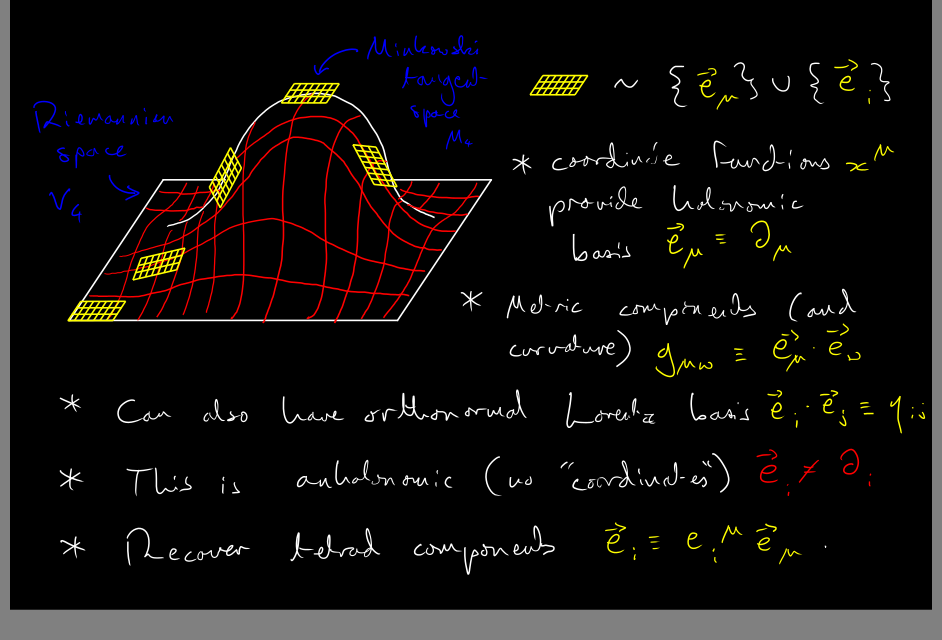 Minkowski
tangent-
space
M₄
Riemannian
space
V₄
~ {e⃗_μ} ∪ {e⃗_i}
* coordinate functions x^μ
provide holonomic
basis e⃗_μ ≡ ∂_μ
* Metric components (and
curvature) g_μν ≡ e⃗_μ · e⃗_ν
* Can also have orthonormal Lorentz basis e⃗_i · e⃗_j ≡ η_ij
* This is anholonomic (no "coordinates") e⃗_i ≠ ∂_i
* Recover tetrad components e⃗_i ≡ e_i^μ e⃗_μ .